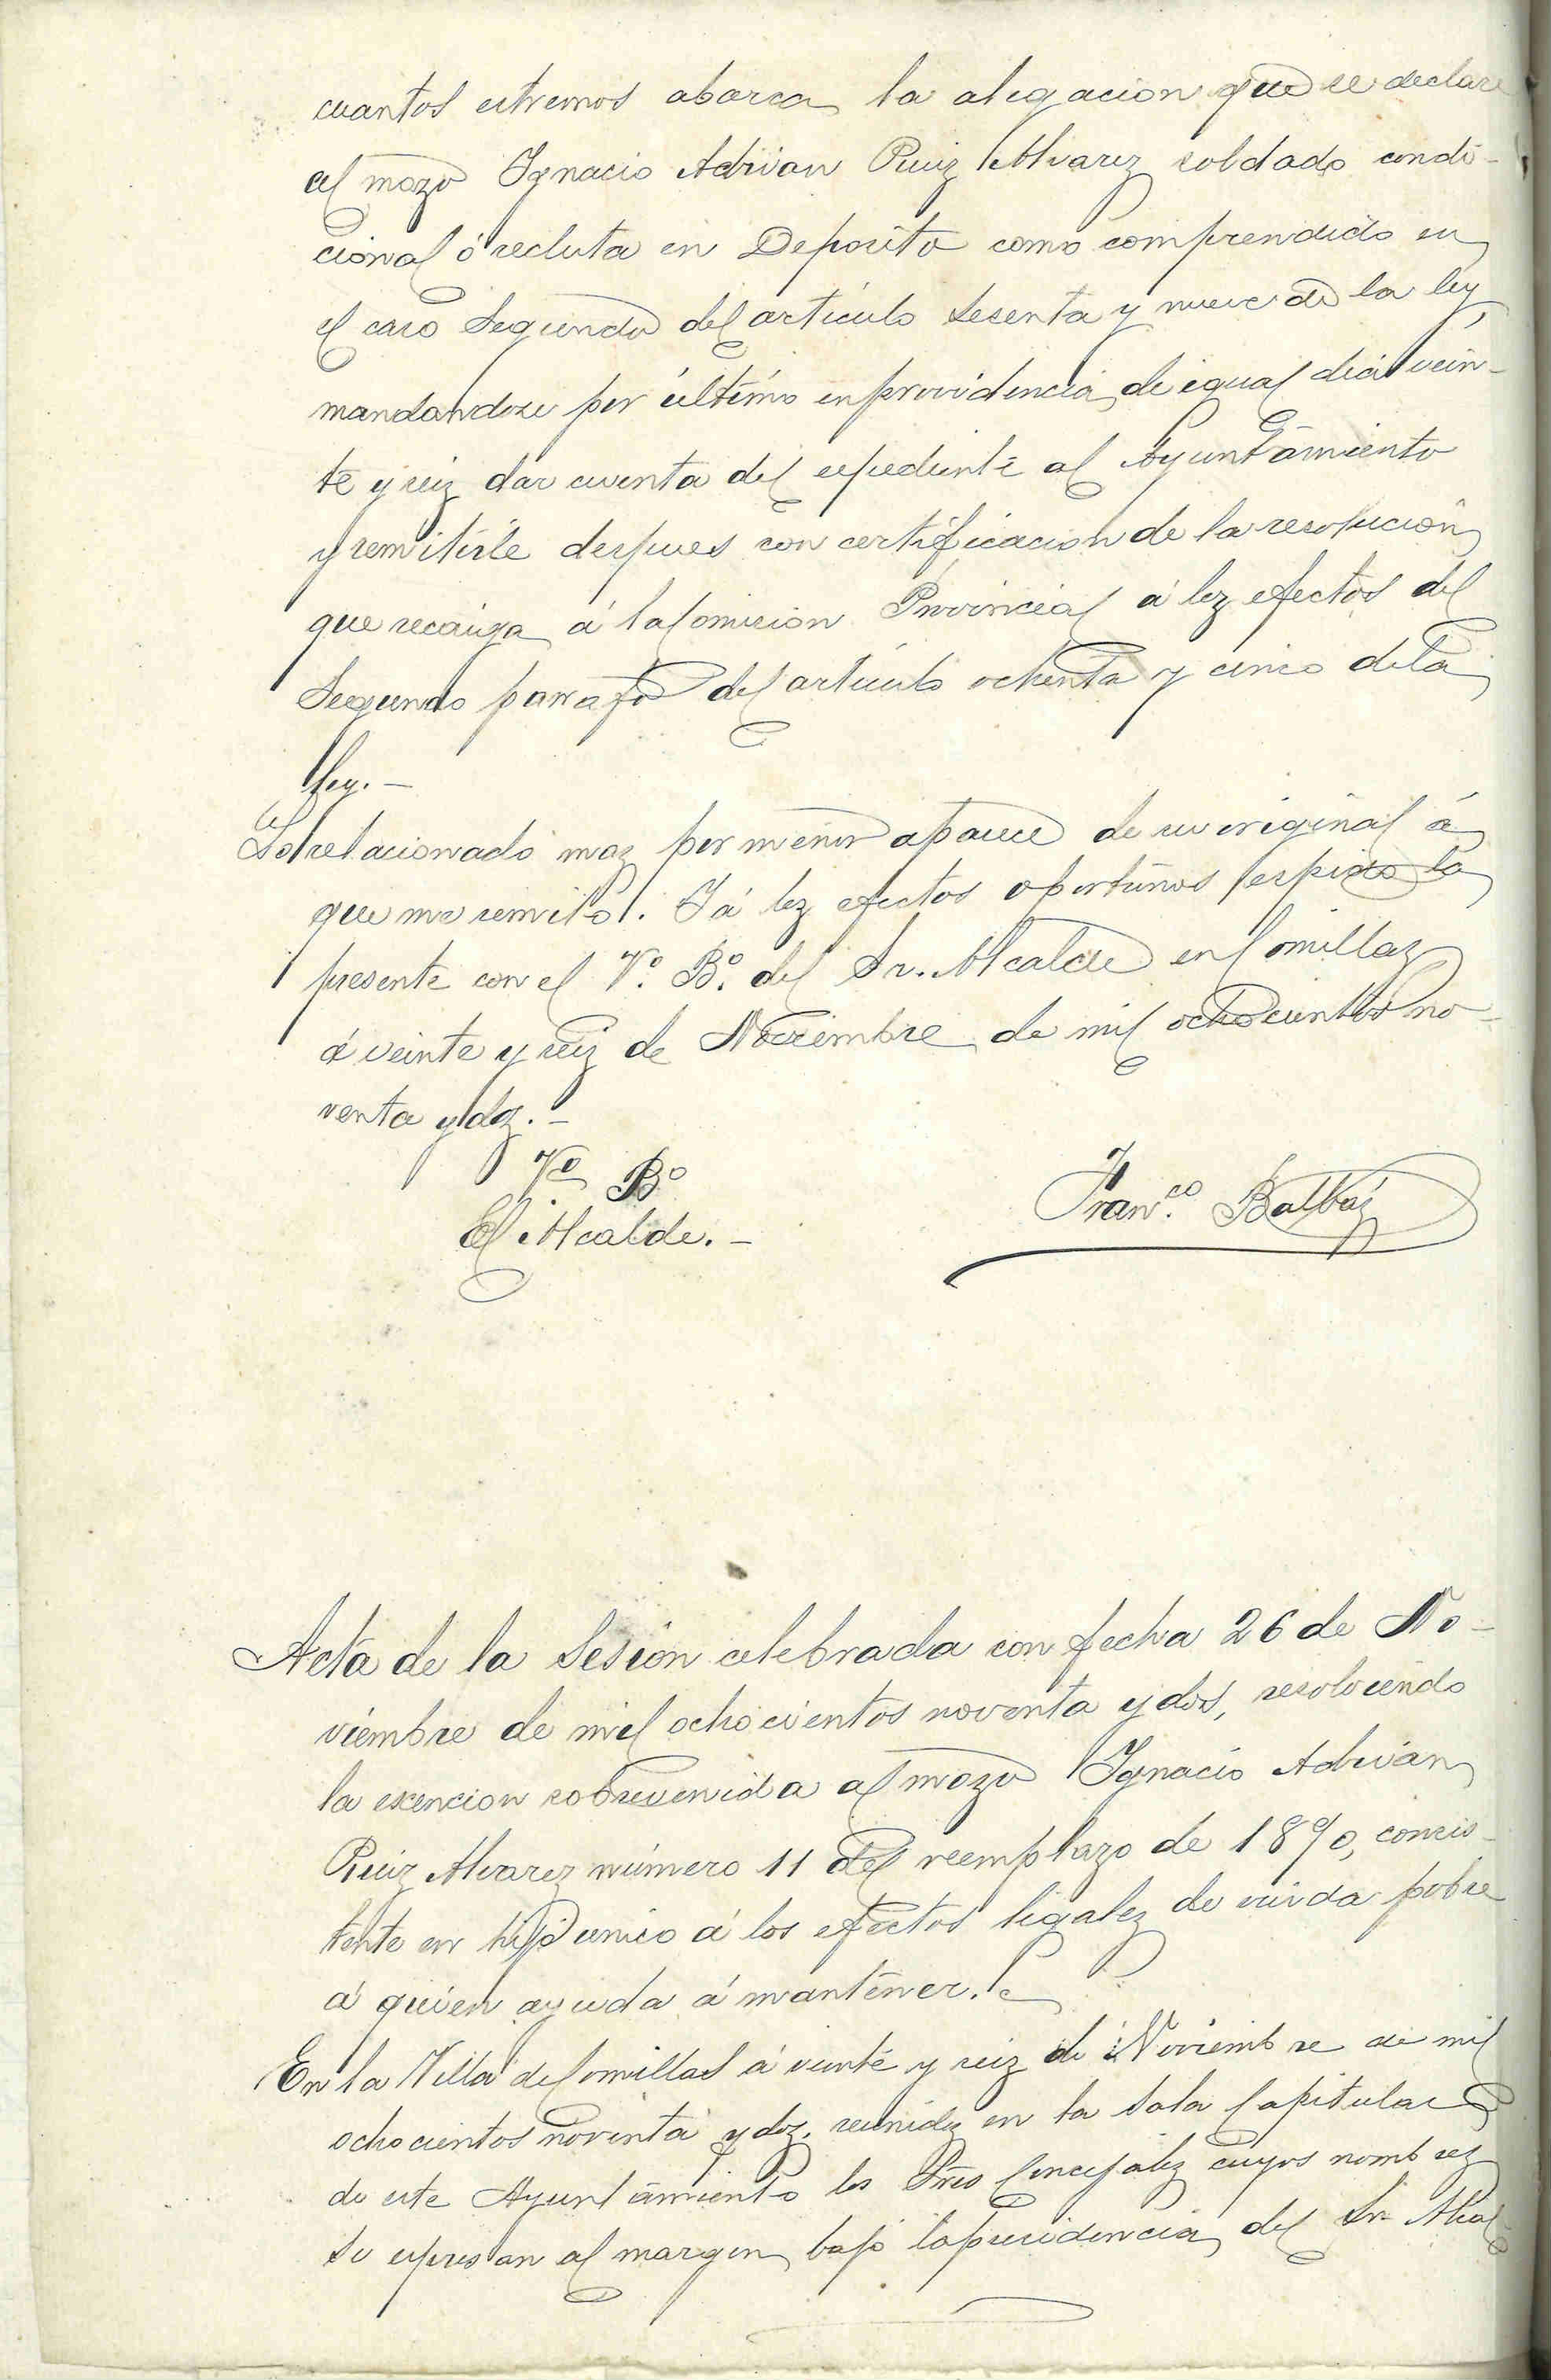 cuantos estremos abarca la alegacion que se declare
al mozo Ignacio Adrian Ruiz Alvarez soldado condi-
cional ó recluta en Deposito como comprendido en
el caso Segundo del articulo sesenta y nueve de la ley,
mandandose por último en providencia de igual dia vein-
te y seiz dar cuenta del espediente al Ayuntamiento
y remitirle despues con certificacion de la resolucion
que recaiga á la Comision Provincial á loz efectos del
Segundo parrafo del articulo ochenta y cinco de la
ley.—
Lo relacionado maz por menor aparece de su original á
el
que me remito. Y á loz efectos oportunos espido la
presente con el V.º B.º del Sr. Alcalde en Comillaz
á veinte y seiz de Noviembre de mil ochocientos no-
venta y doz.—
Vº Bº
El Alcalde.—
Fran.co Balbáz
Acta de la Sesion celebrada con fecha 26 de No-
viembre de mil ochocientos noventa y dos, resolviendo
la esencion sobrevenida al mozo Ignacio Adrian
Ruiz Alvarez número 11 del reemplazo de 1890, concis-
tente en hijo unico á los efectos legalez de viuda pobre
á quien ayuda á mantener.
En la Villa de Comillas á veinte y seiz de Noviembre de mil
ochocientos noventa y doz, reunidoz en la Sala Capitular
de este Ayuntamiento los Sres Concejalez cuyos nombrez
se espresan al margen bajo la presidencia del Sr Alcal-